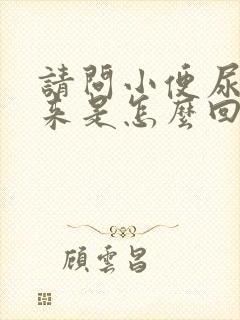 請問小便尿
来是怎麼回
顧雲昌